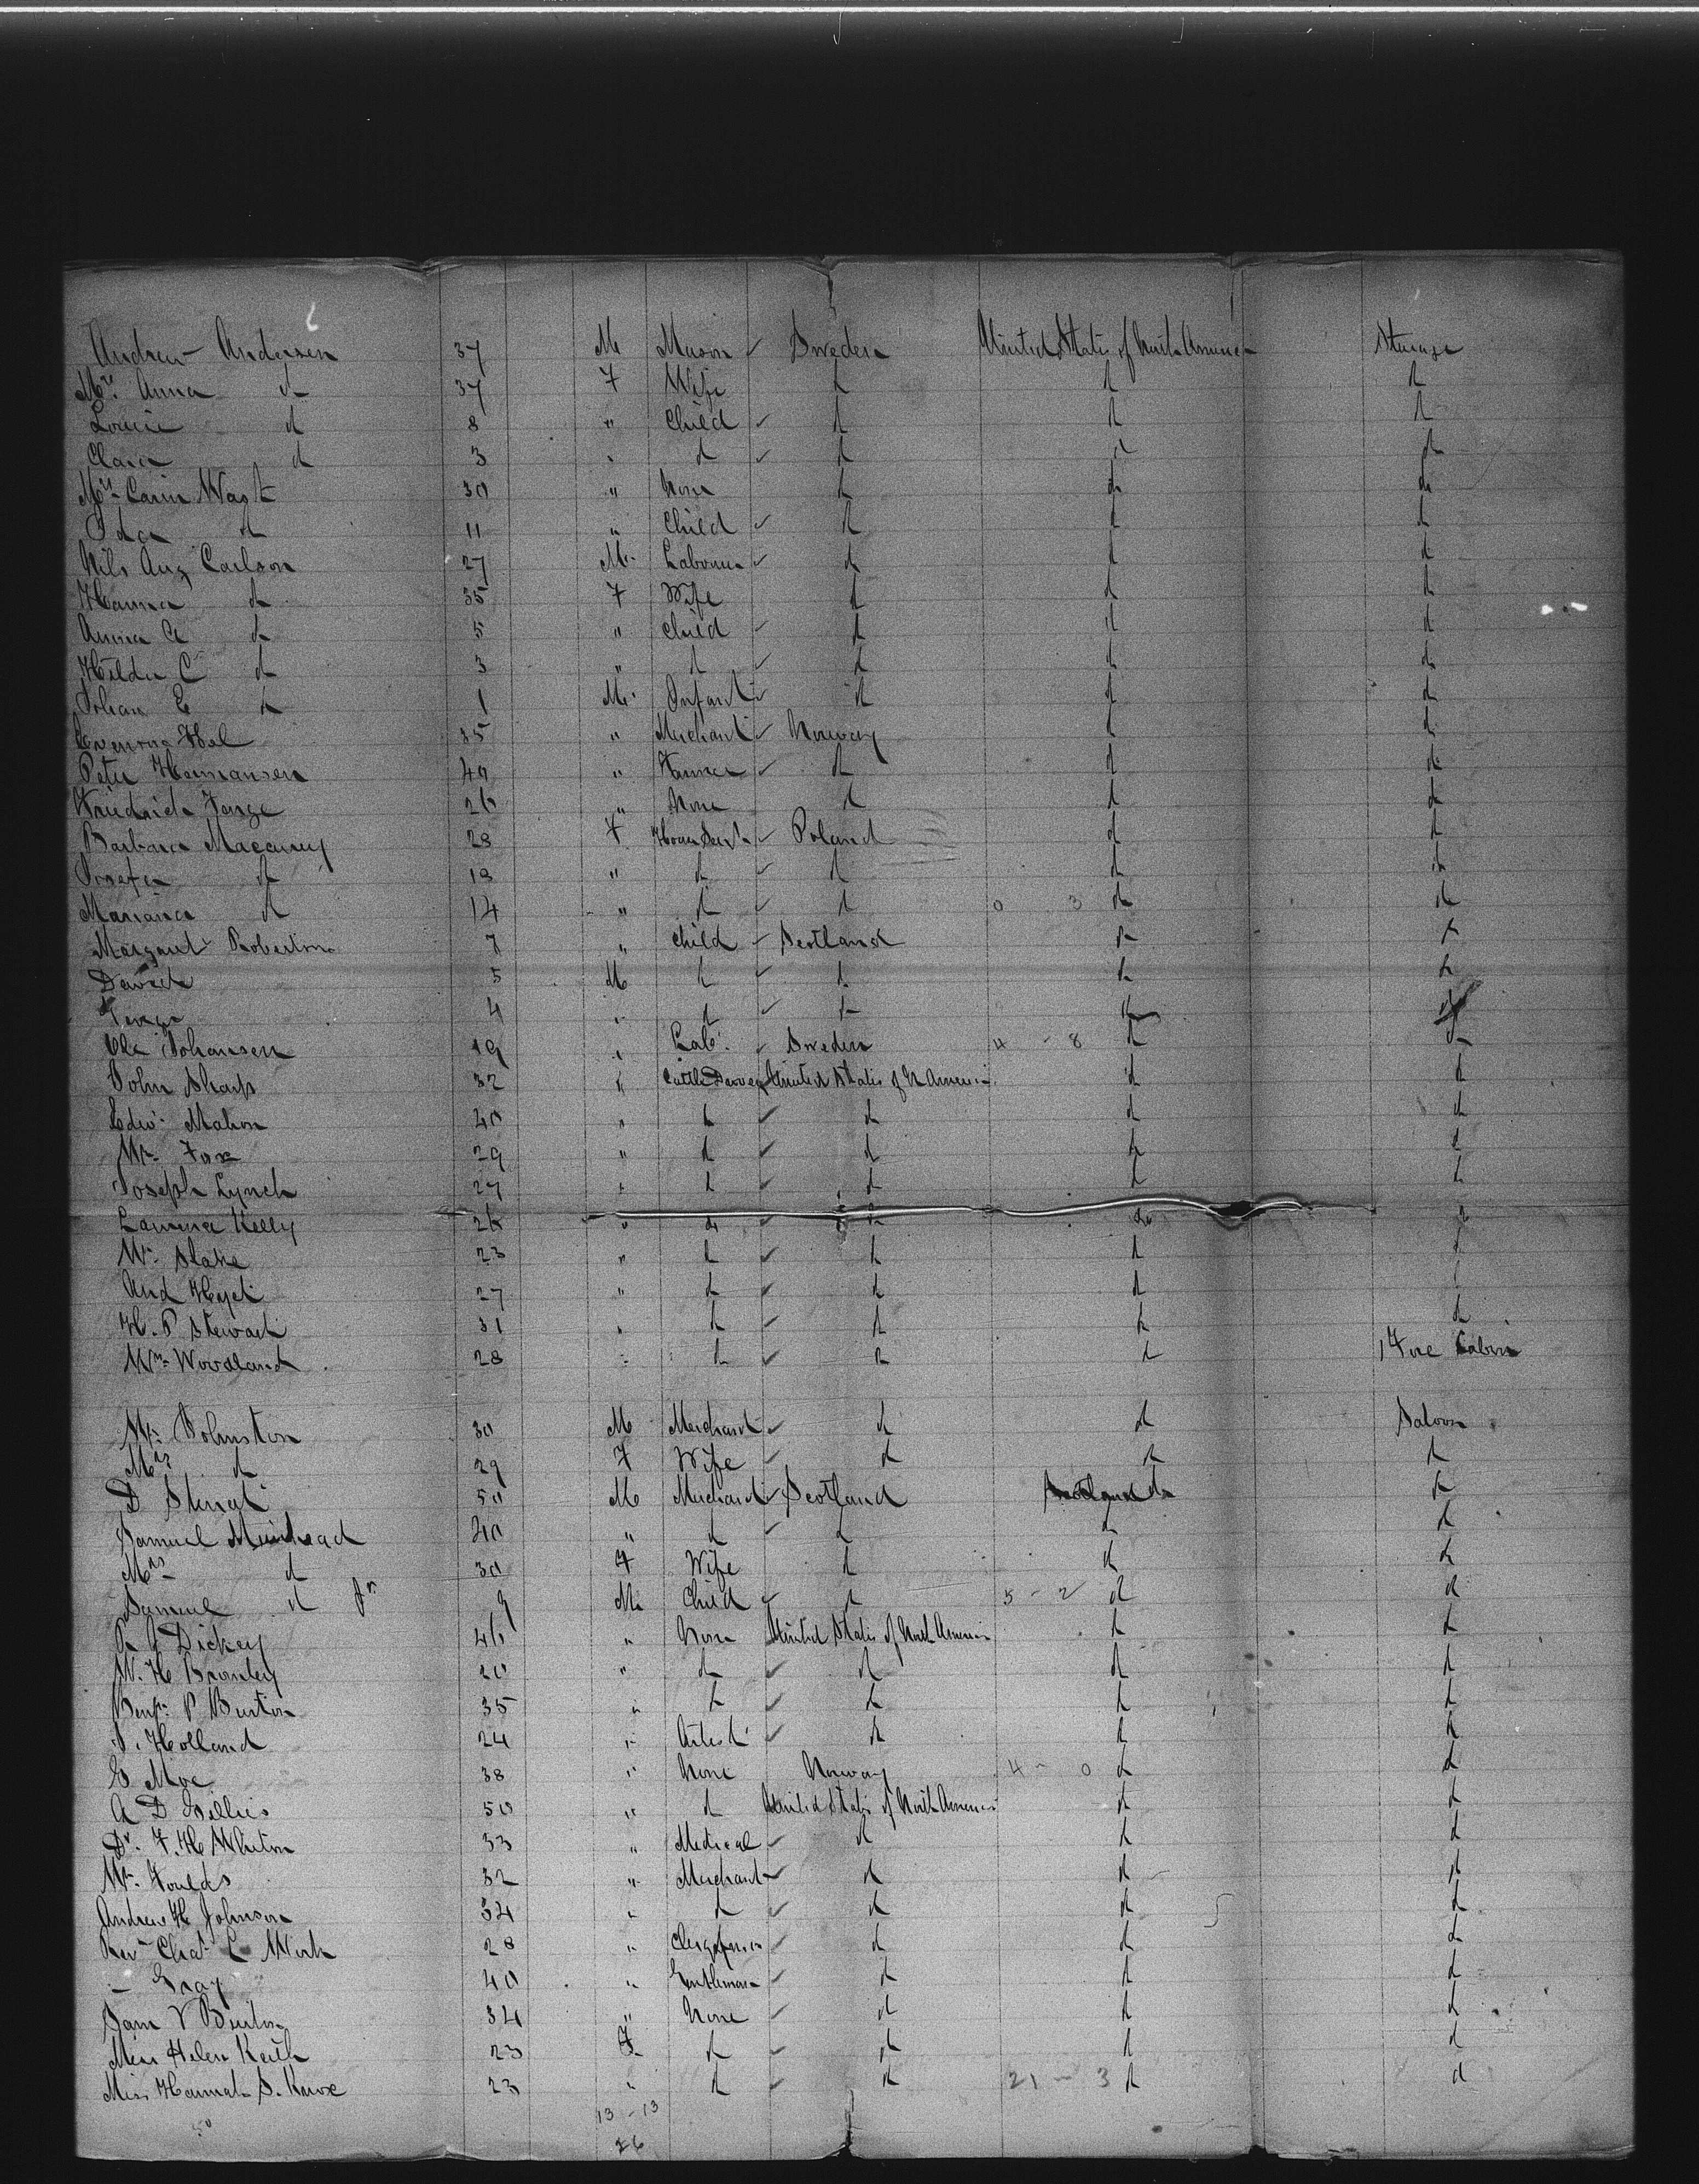 Andrew Andersen 37 M Mason Sweden United States of North America Steerage
Mrs Anna do 37 F Wife do do do
Louise do 8 " Child do do do
Clara do 3 " do do do do
Mrs Carin Wast 30 " None do do do
Ida do 11 " Child do do do
Nils Aug Carlson 27 M Labourer do do do
Hanna do 35 F Wife do do do
Anna C do 5 " Child do do do
Hilda C do 3 " do do do do
Johan E do 1 M Infant do do do
Hol 35 " Merchant Norway do do
Peter Hermansen 40 " Farmer do do do
26 " None do do do
Barbara 28 F House Servt Poland do do
Josefa do 18 " do do do do
Marianna do 14 " do do 0 3 do do
Margaret Robertson 7 " Child Scotland do do
David 5 M do do do do
George 4 " do do do do
Ole Johansen 19 " Lab. Sweden 4 - 8 do do
John Sharp 32 " Cattle Drover United States of N America do do
Edw. Mahon 40 " do do do do
Mr. Fox 29 " do do do do
Joseph Lynch 27 " do do do do
Kelly 26 " do do do do
Wm Slake 23 " do do do
And 27 " do do do
H. P Stewart 31 " do do do do
Wm Woodland 28 " do do do Fore Cabin
Mr. Johnston 30 M Merchant do do Saloon
Mrs do 29 F Wife do do do
D 50 M Merchant Scotland do do
Samuel Muirhead 40 " do do do do
Mrs do 30 F Wife do do do
Samuel do Jr 9 M Child do 5 - 2 do do
R J Dickey 46 " None United States of North America do do
W. H Bromley 20 " do do do do
Benjn P Burton 35 " do do do do
J. Holland 24 " Artist do do do
G Moe 38 " None Norway 4 - 0 do do
A D Gillies 50 " do United States of North America do do
Dr. F. H Whiton 33 " Medical do do do
Mr. Foulds 32 " Merchant do do do
Andrew H Johnson 34 " do do do do
Revd Chas L Work 28 " Clergyman do do do
- Gray 40 " Gentleman do do do
Sam V Burton 34 " None do do do
Miss Helen Keith 23 F do do do do
Miss Hannah S. Knox 23 " do do 21 - 3 do do
50 13 - 13
26